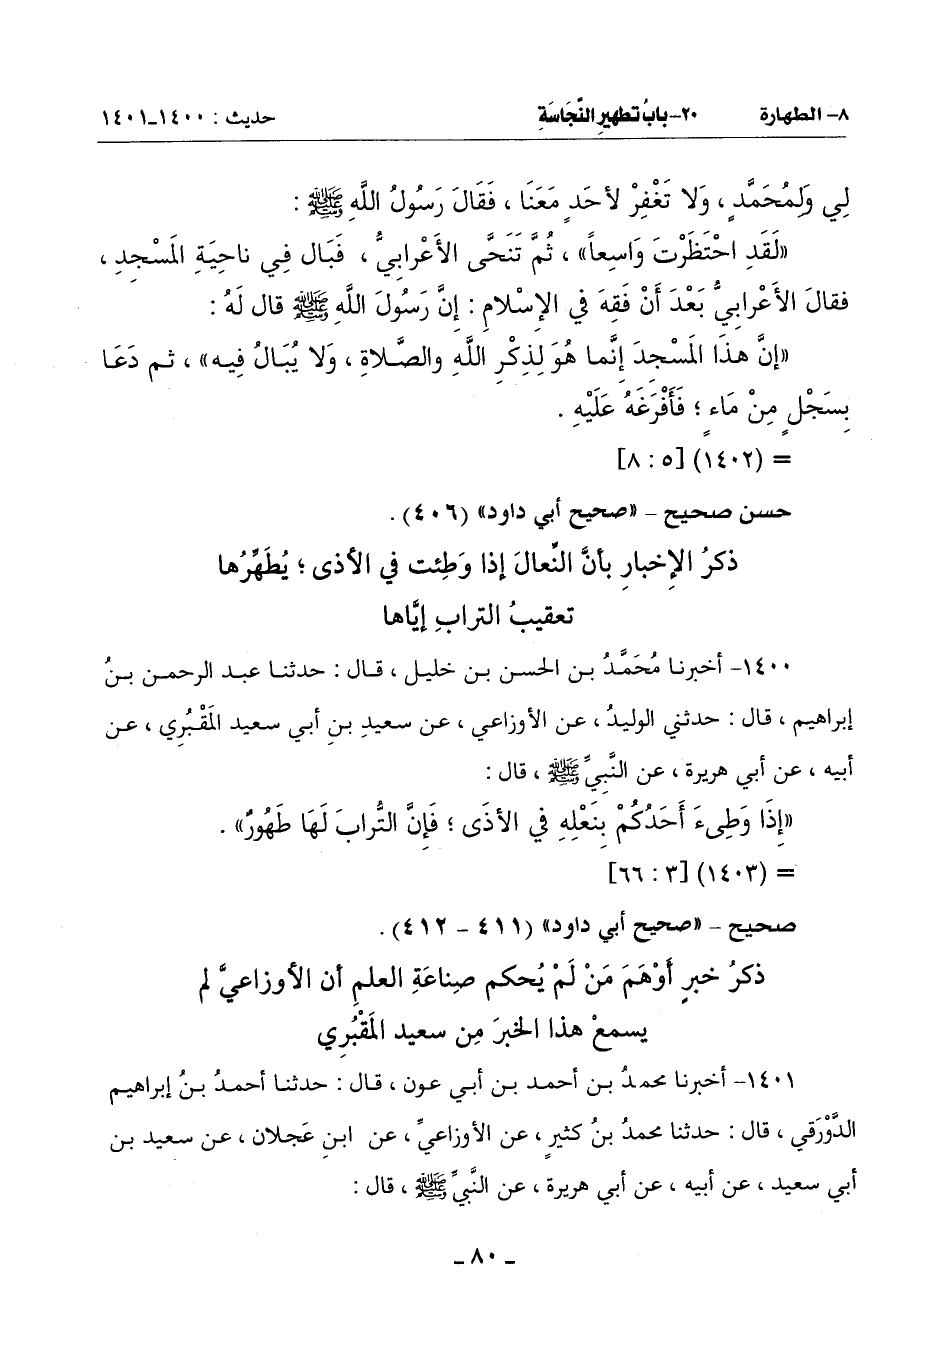 ٨- الطهارة ٢٠-بابُ تطهيرِ النَّجَاسَةِ حديث : ١٤٠٠-١٤٠١
لِي وَلِمُحَمَّدٍ ، وَلا تَغْفِرْ لأحَدٍ مَعَنَا ، فَقَالَ رَسُولُ اللَّهِ ﷺ :
«لَقَدِ احْتَظَرْتَ وَاسِعاً» ، ثُمَّ تَنَحَّى الأَعْرابيُّ ، فَبَال فِي ناحِيَةِ المَسْجدِ ،
فقالَ الأَعْرابيُّ بَعْدَ أَنْ فَقِهَ في الإسْلامِ : إنَّ رَسُولَ اللَّهِ ﷺ قال لَهُ :
«إنَّ هذَا المَسْجدَ إنَّما هُوَ لِذِكْرِ اللَّهِ والصَّلاةِ ، وَلا يُبَالُ فيه» ، ثـم دَعَا
بِسَجْلٍ مِنْ مَاءٍ ؛ فَأَفْرَغَهُ عَلَيْهِ .
= (١٤٠٢) [٥ : ٨]
حسن صحيح – «صحيح أبي داود» (٤٠٦) .
ذكرُ الإخبارِ بأنَّ النِّعالَ إذا وَطِئت في الأذى ؛ يُطَهِّرُها
تعقيبُ الترابِ إيَّاها
١٤٠٠- أخبرنا مُحَمَّدُ بن الحسن بن خليل ، قـال : حدثنـا عبـد الرحمـن بـنُ
إبراهيم ، قال : حدثني الوليدُ ، عن الأوزاعي ، عن سعيدِ بنِ أبي سعيد المَقْبُري ، عـن
أبيه ، عن أبي هريرة ، عن النَّبيِّ ﷺ ، قال :
«إذَا وَطِىءَ أَحَدُكُمْ بنَعْلِهِ في الأذَى ؛ فَإنَّ التُّرابَ لَهَا طَهُورٌ» .
= (١٤٠٣) [٣ : ٦٦]
صحيح – «صحيح أبي داود» (٤١١ – ٤١٢) .
ذكرُ خبرٍ أَوْهَمَ مَنْ لَمْ يُحكم صِناعَةِ العلمِ أن الأوزاعيَّ لم
يسمعْ هذا الخبرَ مِن سعيد المَقْبُرِي
١٤٠١- أخبرنا محمدُ بـن أحمد بـن أبـي عون ، قـال : حدثنـا أحمـدُ بـنُ إبراهيم
الدَّوْرَقي ، قال : حدثنا محمدُ بنُ كثيرٍ ، عن الأوزاعيِّ ، عن ابنِ عَجلان ، عـن سعيد بن
أبي سعيد ، عن أبيه ، عن أبي هريرة ، عن النَّبيِّ ﷺ ، قال :
ـ ٨٠ ـ